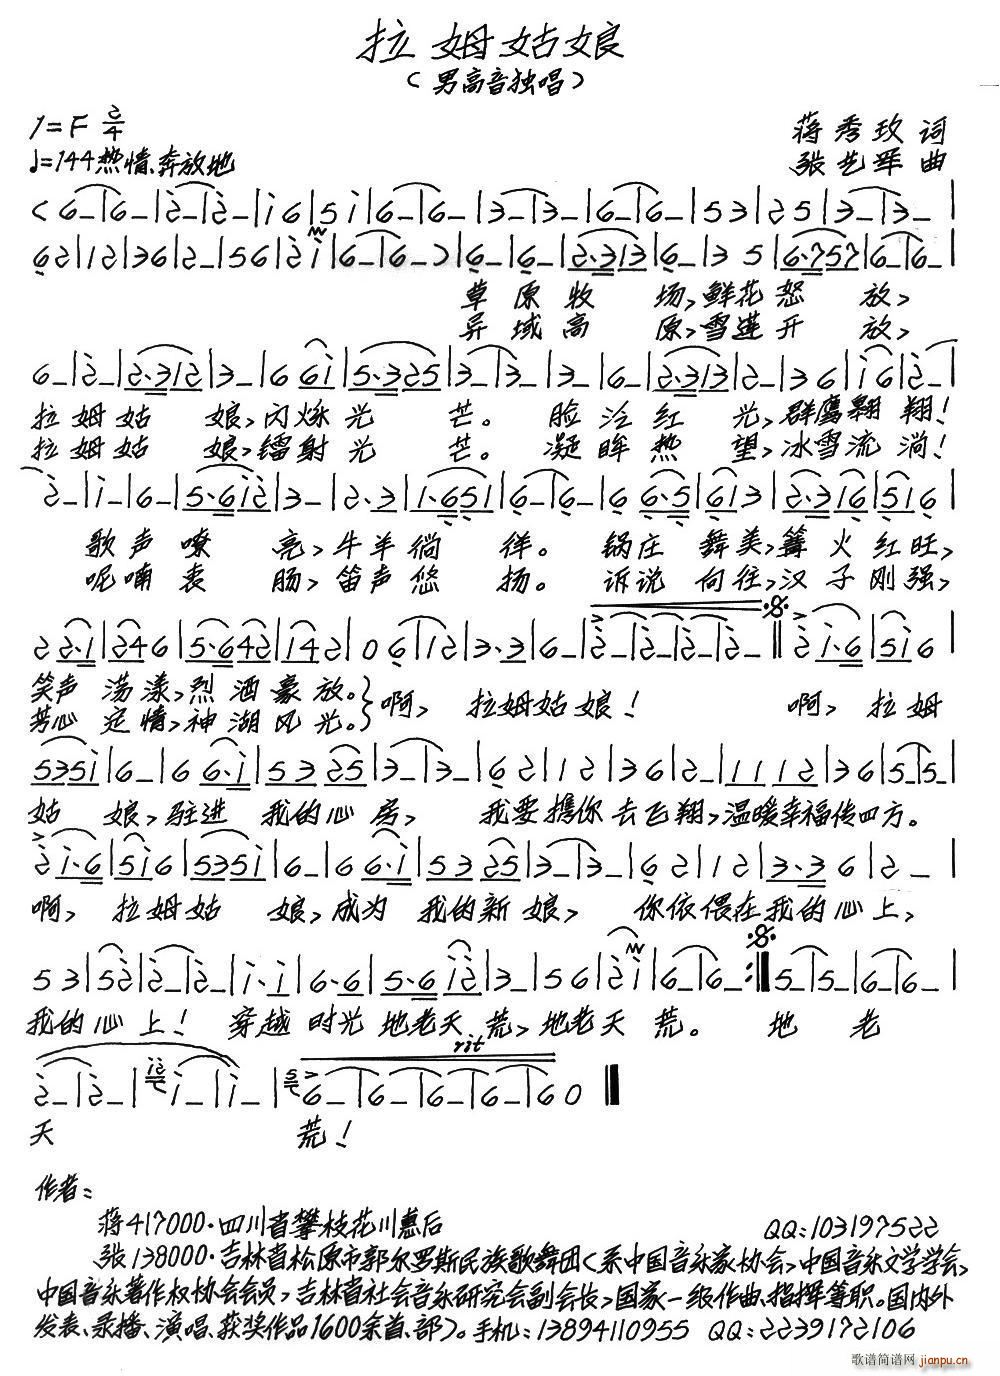 拉姆姑娘
（男高音独唱）
1=F 2/4
蒋秀玫 词
♩=144 热情、奔放地
张艺军 曲
草原牧场，鲜花怒放，
异域高原，雪莲开放，
拉姆姑娘，闪烁光芒。脸泛红光，群鹰翱翔！
拉姆姑娘，镭射光芒。凝眸热望，冰雪流淌！
歌声嘹亮，牛羊徜徉。锅庄舞美，篝火红旺，
呢喃衷肠，笛声悠扬。诉说向往，汉子刚强，
笑声荡漾，烈酒豪放。}啊，拉姆姑娘！啊，拉姆
芳心定情，神湖风光。
姑娘，驻进我的心房，我要携你去飞翔，温暖幸福传四方。
啊，拉姆姑娘，成为我的新娘，你依偎在我的心上，
我的心上！穿越时光地老天荒，地老天荒。地老
rit
天荒！
作者：
蒋417000·四川省攀枝花川惠后
QQ:103197522
张138000·吉林省松原市郭尔罗斯民族歌舞团（系中国音乐家协会，中国音乐文学学会，
中国音乐著作权协会会员，吉林省社会音乐研究会副会长，国家一级作曲、指挥等职。国内外
发表、录播、演唱、获奖作品1600余首、部）。手机：13894110955 QQ:2239172106
歌谱简谱网 jianpu.cn